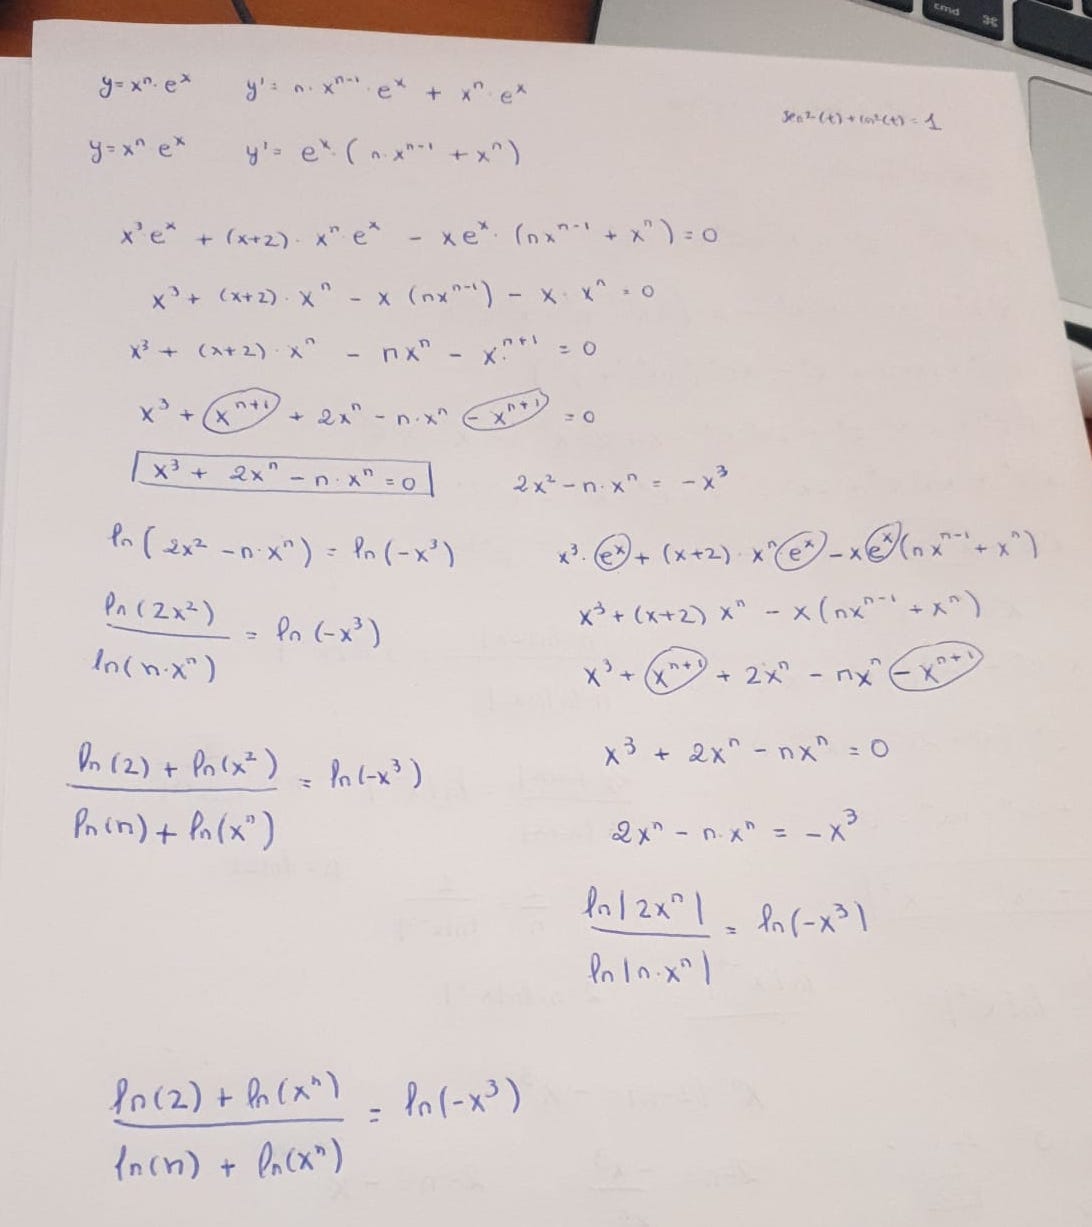 cmd ⌘
y = xⁿ · eˣ    y' = n · xⁿ⁻¹ · eˣ + xⁿ · eˣ
sen²(t) + cos²(t) = 1
y = xⁿ eˣ    y' = eˣ · (n · xⁿ⁻¹ + xⁿ)
x³eˣ + (x+2) · xⁿ · eˣ − xeˣ · (nxⁿ⁻¹ + xⁿ) = 0
x³ + (x+2) · xⁿ − x (nxⁿ⁻¹) − x · xⁿ = 0
x³ + (x+2) · xⁿ − nxⁿ − xⁿ⁺¹ = 0
x³ + xⁿ⁺¹ + 2xⁿ − n · xⁿ − xⁿ⁺¹ = 0
x³ + 2xⁿ − n · xⁿ = 0    2x² − n · xⁿ = −x³
ln(2x² − n · xⁿ) = ln(−x³)
ln(2x²) / ln(n · xⁿ) = ln(−x³)
ln(2) + ln(x²) / ln(n) + ln(xⁿ) = ln(−x³)
x³ · eˣ + (x+2) · xⁿ eˣ − xeˣ (nxⁿ⁻¹ + xⁿ)
x³ + (x+2) xⁿ − x (nxⁿ⁻¹ + xⁿ)
x³ + xⁿ⁺¹ + 2xⁿ − nxⁿ − xⁿ⁺¹
x³ + 2xⁿ − nxⁿ = 0
2xⁿ − n · xⁿ = −x³
ln|2xⁿ| / ln|n · xⁿ| = ln(−x³)
ln(2) + ln(xⁿ) / ln(n) + ln(xⁿ) = ln(−x³)